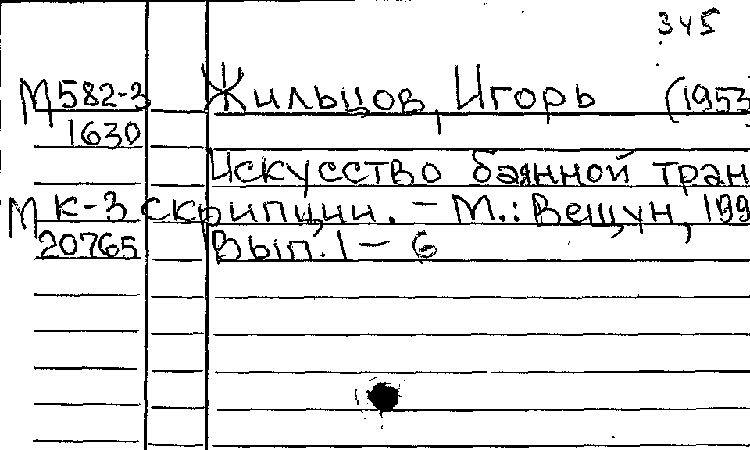 345
М582-3 Жильцов, Игорь (1953
1630
Искусство баянной тран
МК-3 скрипции. - М.: Вещун, 199
20765 Вып. 1 - 6